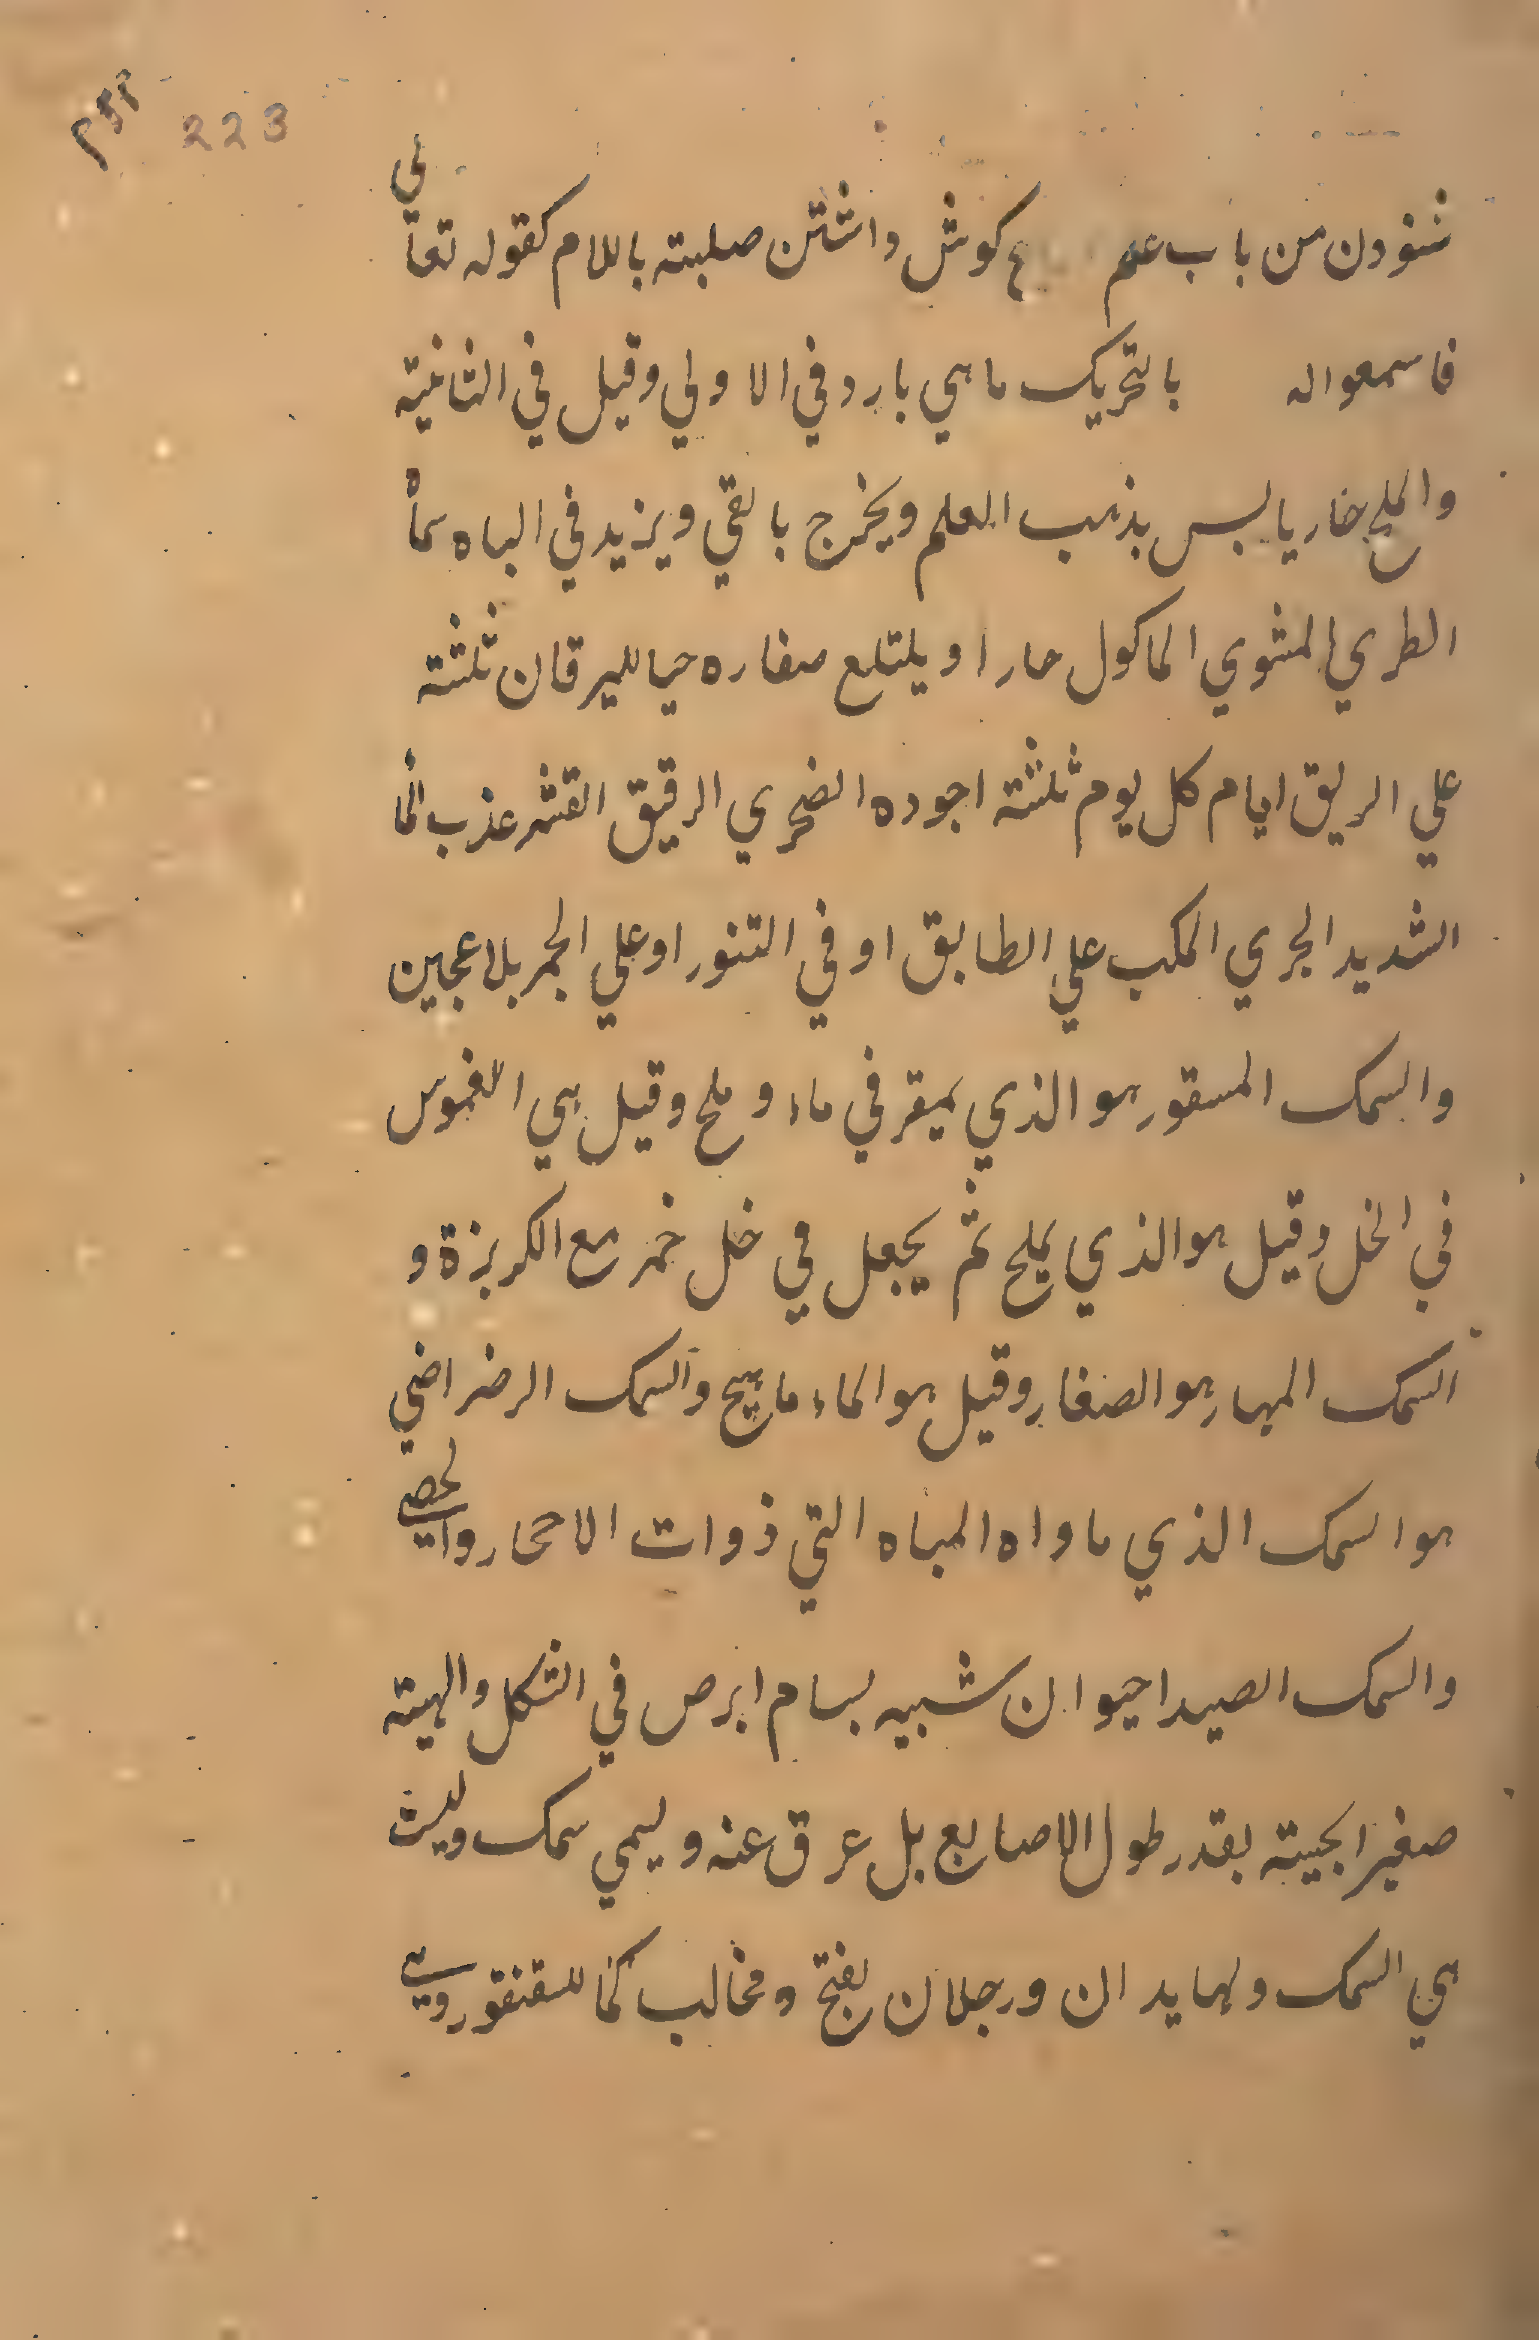 223
شنودن من باب علم ع كوش داشتن صلبته باللام كقوله تعالي
فاسمعواله بالتحريك ماهي بارد في الاولي وقيل في الثانيته
والملح خار يابس بذهب البلعم ويخرج بالقي ويزيد في الباه سما
الطري المشوي الماكول حارا ويلتلع صغاره حيا لليرقان ثلثته
علي الريق ايام كل يوم ثلثته اجوده الضحري الرقيق القشر عذب الما
الشديد الجري المكب علي الطابق او في التنور او علي الجمر بلا عجين
والسمك المسقور هو الذي يمقر في ماء و ملح وقيل هي الغموس
في الخل وقيل هو الذي يملح ثم يجعل في خل خمر مع الكربزة و
السمك المهار هو الصغار وقيل هو الماء ماييح والسمك الرضراضي
هو السمك الذي ماواه المياه التي ذوات الاحجار والحصي
والسمك الصيدا حيوان شبيه بسام ابرص في الشكل والهيته
صغير الجيته بقدر طول الاصابع بل عرق عنه ويسمي سمك وليث
هي السمك ولها يدان ورجلان بفتح و مخالب كما للسقنقور وسي